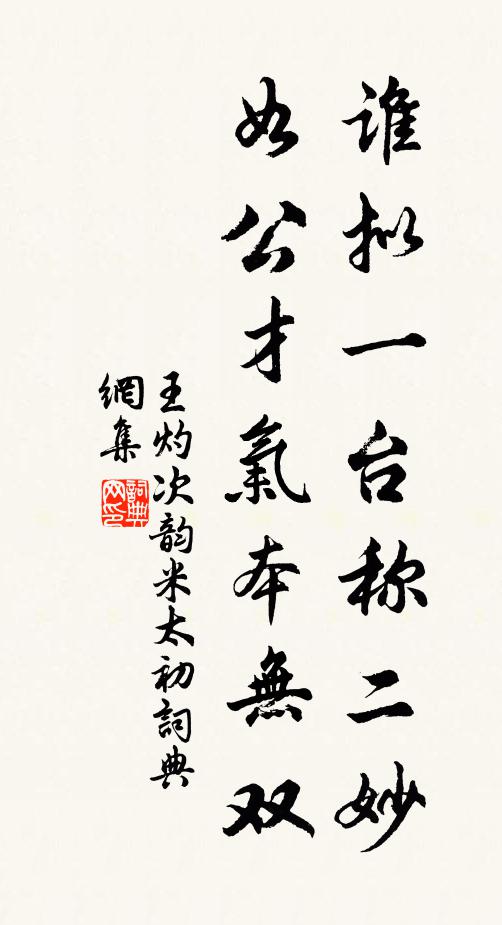 誰拟一台称二妙
如公才氣本無双
王灼次韵米太初詞典
網集
詞典
网印